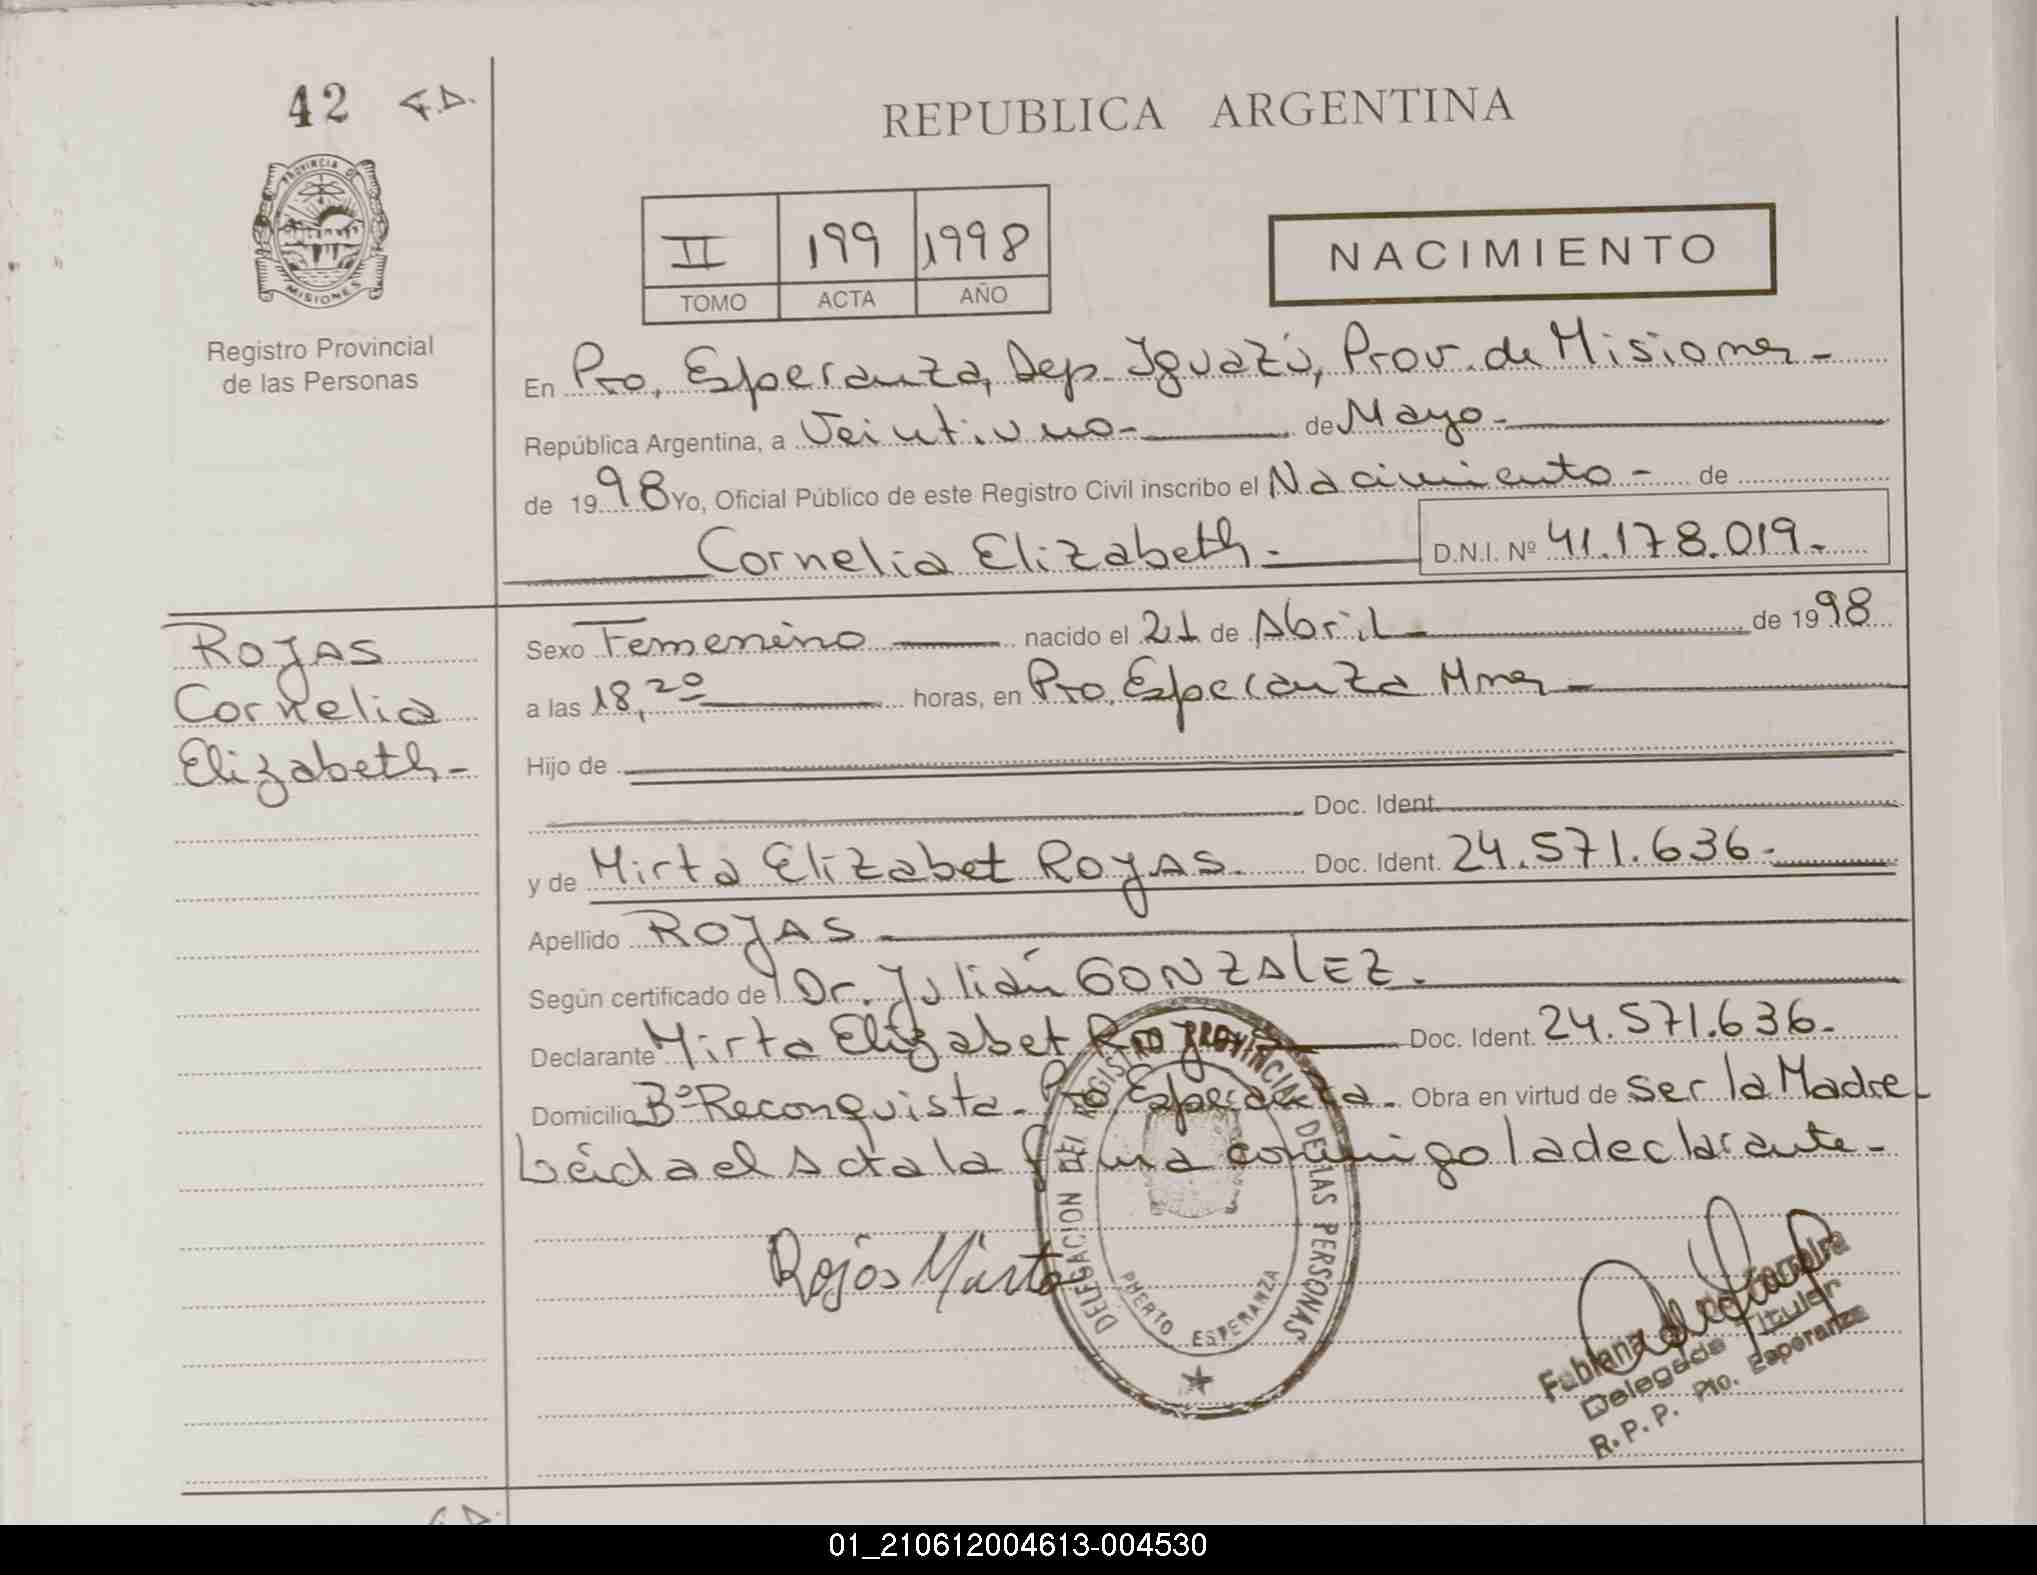 42 F.D.
PROVINCIA DE
MISIONES
Registro Provincial
de las Personas
REPUBLICA ARGENTINA
II 199 1998
TOMO ACTA AÑO
NACIMIENTO
En Pto. Esperanza, Dep. Iguazú, Prov. de Misiones -
República Argentina, a Veintiuno - de Mayo -
de 1998 Yo, Oficial Público de este Registro Civil inscribo el Nacimiento - de
Cornelia Elizabeth - D.N.I. Nº 41.178.019 -
ROJAS
Cornelia
Elizabeth -
Sexo Femenino nacido el 21 de Abril - de 1998
a las 18,20 horas, en Pto. Esperanza Mnes -
Hijo de
Doc. Ident.
y de Mirta Elizabet ROJAS. Doc. Ident. 24.571.636 -
Apellido ROJAS -
Según certificado de Dr. Julián GONZALEZ.
Declarante Mirta Elizabet Rojas Doc. Ident. 24.571.636 -
Domicilio Bº Reconquista - Pto. Esperanza - Obra en virtud de ser la Madre -
Leída el Acta la firma conmigo la declarante -
Rojas Mirta
DELEGACION DEL REGISTRO PROVINCIAL DE LAS PERSONAS
PUERTO ESPERANZA
Fabiana Ferreira
Delegada Titular
R.P.P. Pto. Esperanza
01_210612004613-004530